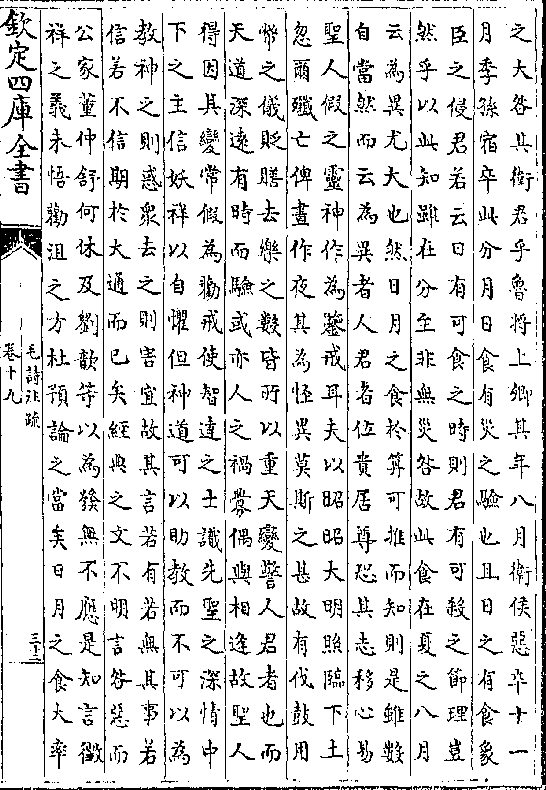 之大咎其衛君乎魯將上卿其年八月衛侯惡卒十一
月季孫宿卒此分月日食有災之驗也且日之有食象
臣之侵君若云日有可食之時則君有可殺之節理豈
然乎以此知雖在分至非無災咎故此食在夏之八月
云為異尤大也然日月之食於算可推而知則是雖數
自當然而云為異者人君者位貴居尊恐其志移心易
聖人假之靈神作為鑒戒耳夫以昭昭大明照臨下土
忽爾殲亡俾晝作夜其為怪異莫斯之甚故有伐鼓用
幣之儀貶膳去樂之數皆所以重天變警人君者也而
天道深遠有時而驗或亦人之禍釁偶與相逢故聖人
得因其變常假為勸戒使智達之士識先聖之深情中
下之主信妖祥以自懼但神道可以助教而不可以為
教神之則惑衆去之則害宜故其言若有若無其事若
信若不信期於大通而已矣經典之文不明言咎惡而
公家董仲舒何休及劉歆等以為發無不應是知言徵
祥之義未悟勸沮之方杜預論之當矣日月之食大率
欽定四庫全書
毛詩注疏
卷十九
三十三